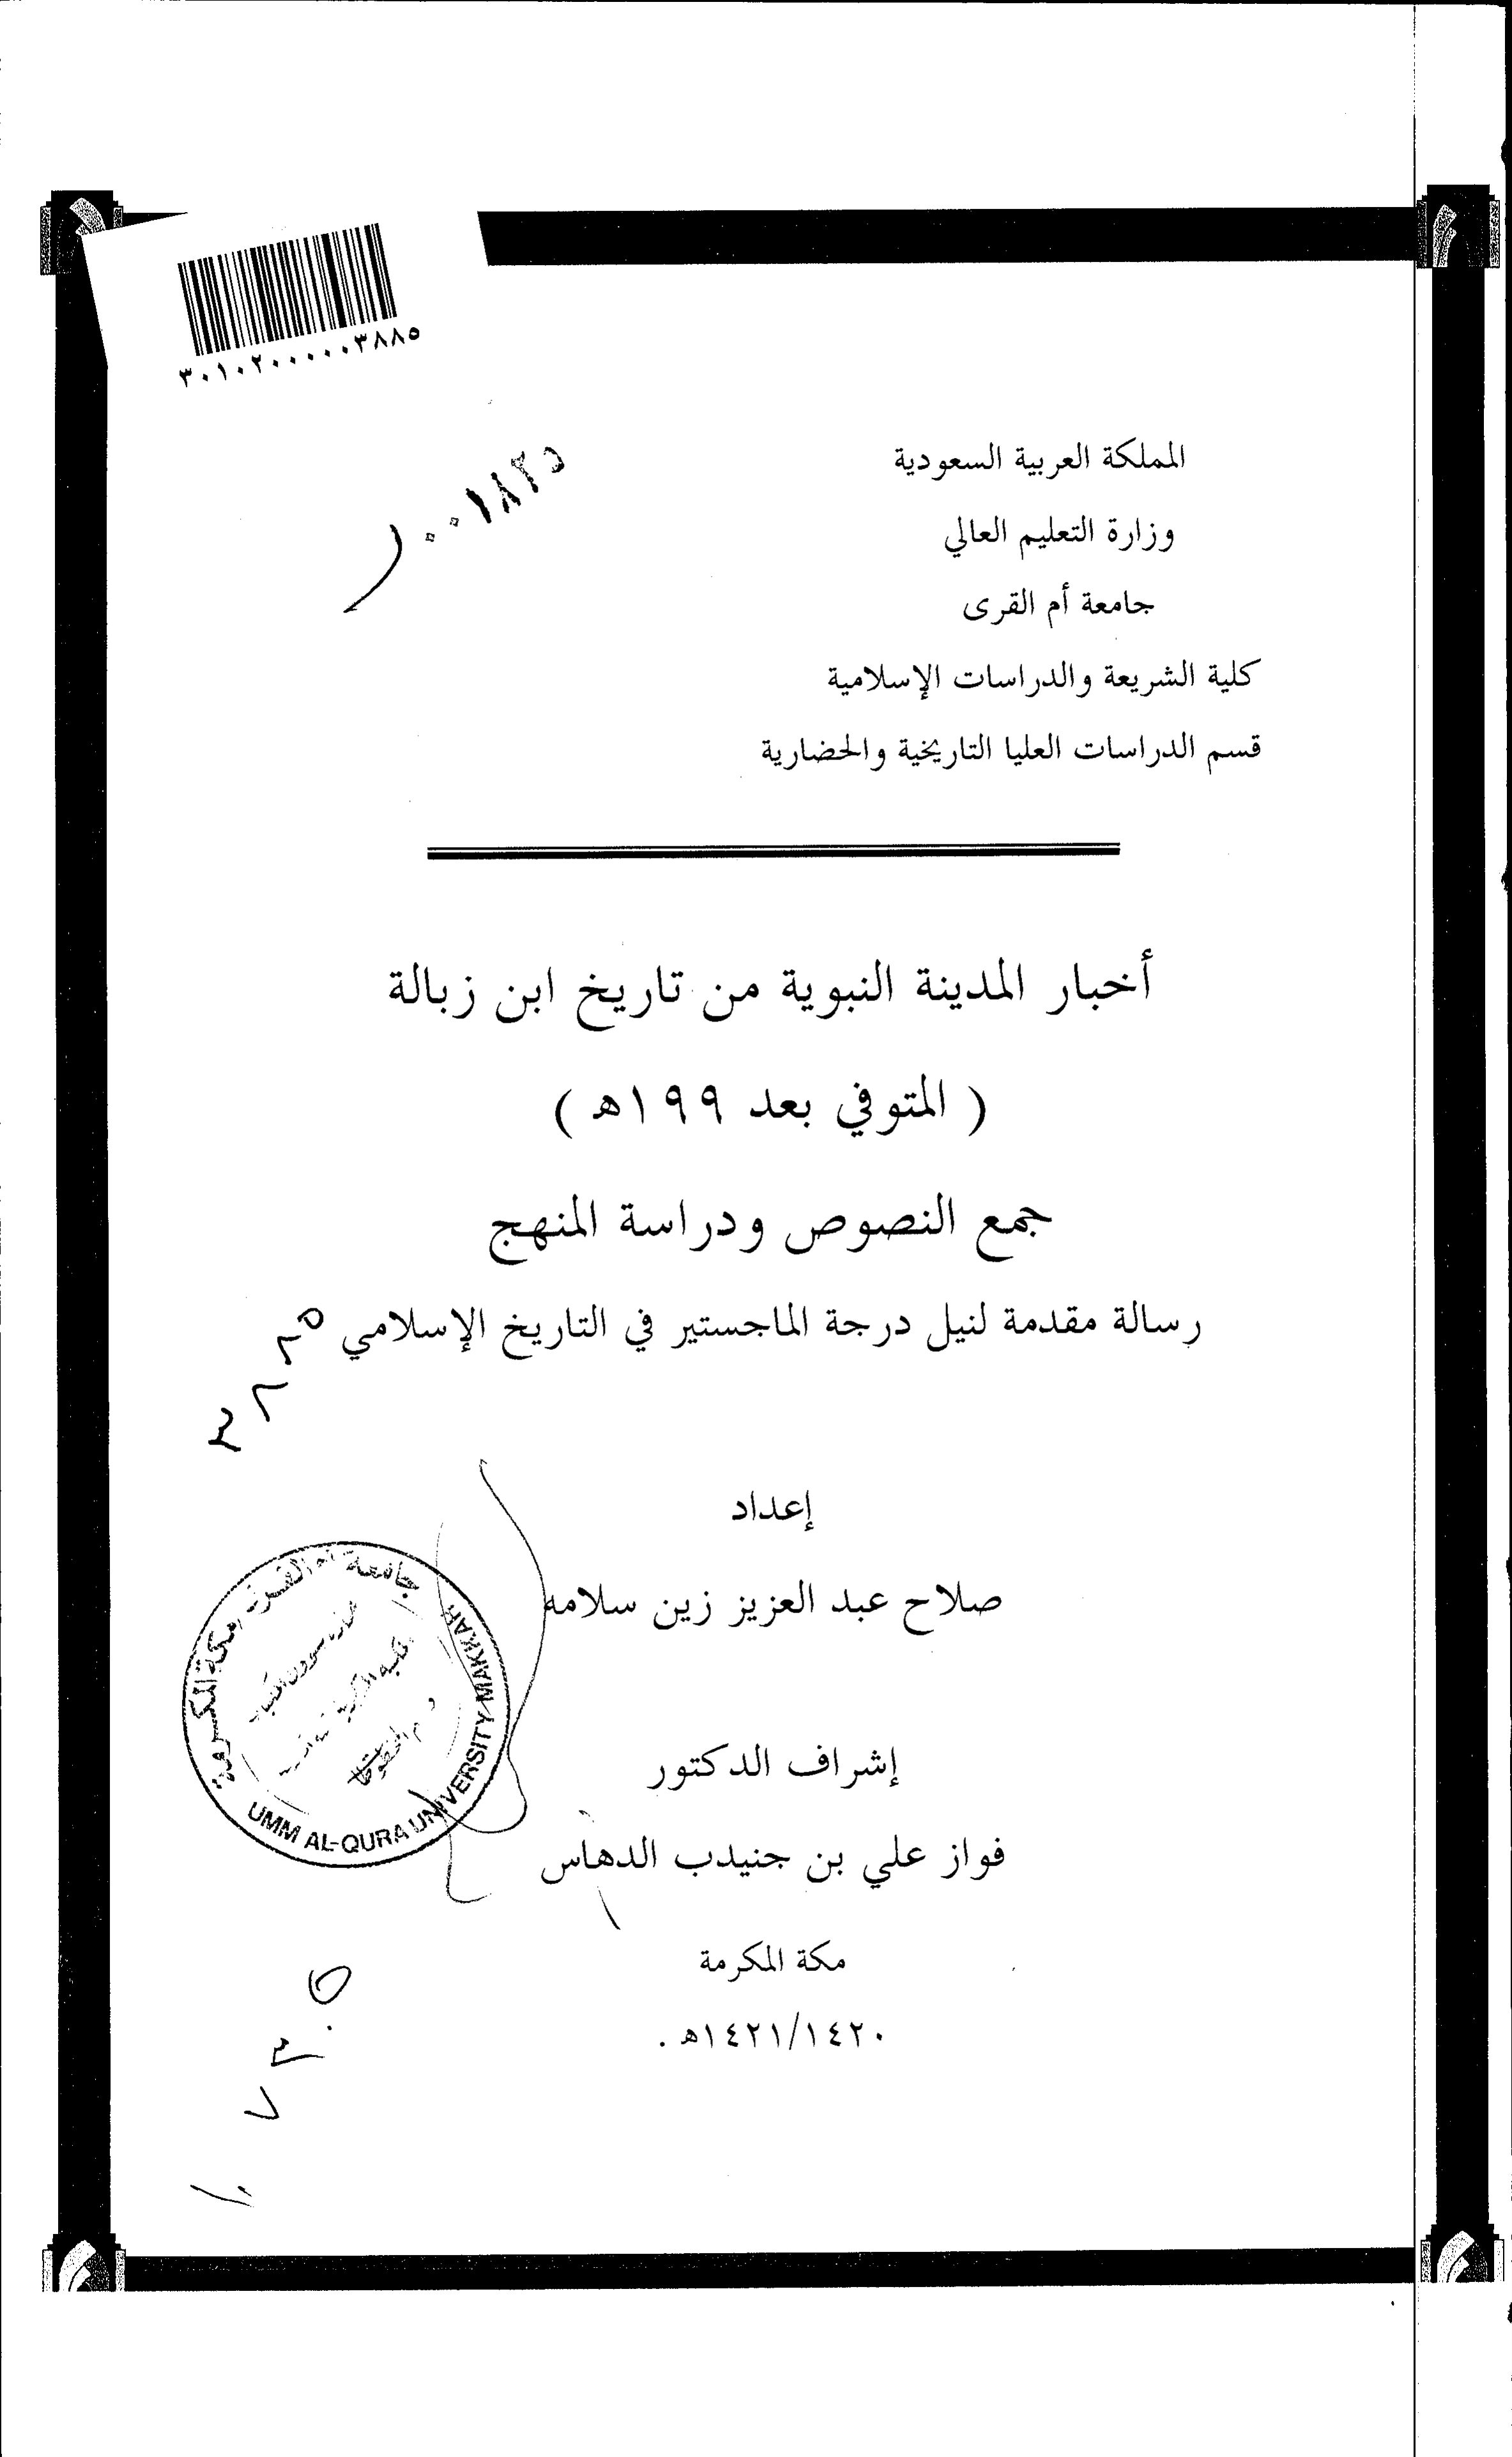 ٣٠١٠٢٠٠٠٠٠٣٨٨٥
المملكة العربية السعودية
وزارة التعليم العالي
جامعة أم القرى
كلية الشريعة والدراسات الإسلامية
قسم الدراسات العليا التاريخية والحضارية
أخبار المدينة النبوية من تاريخ ابن زبالة
( المتوفي بعد ١٩٩هـ )
جمع النصوص ودراسة المنهج
رسالة مقدمة لنيل درجة الماجستير في التاريخ الإسلامي
٣٨٨٥
إعداد
صلاح عبد العزيز زين سلامه
جامعة أم القرى مكة المكرمة
UMM AL-QURA UNIVERSITY MAKKAH
إشراف الدكتور
فواز علي بن جنيدب الدهاس
مكة المكرمة
١٤٢١/١٤٢٠هـ .